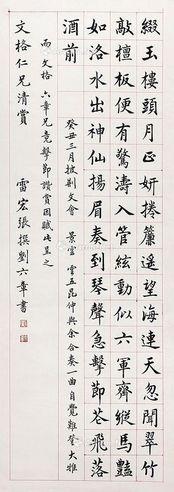 綴玉樓頭月正妍捲簾遙望海連天忽聞翠竹
敲檀板便有驚濤入管絃動似六軍齊縱馬豔
如洛水出神仙揚眉奏到琴聲急擊節花飛落
酒前
癸丑三月披荆文會景雲雲五昆仲與余合奏一曲自覺難登大雅
而文格六章兄竟擊節讚賞因賦此呈之
文格仁兄清賞
雷宏張撰劉六章書